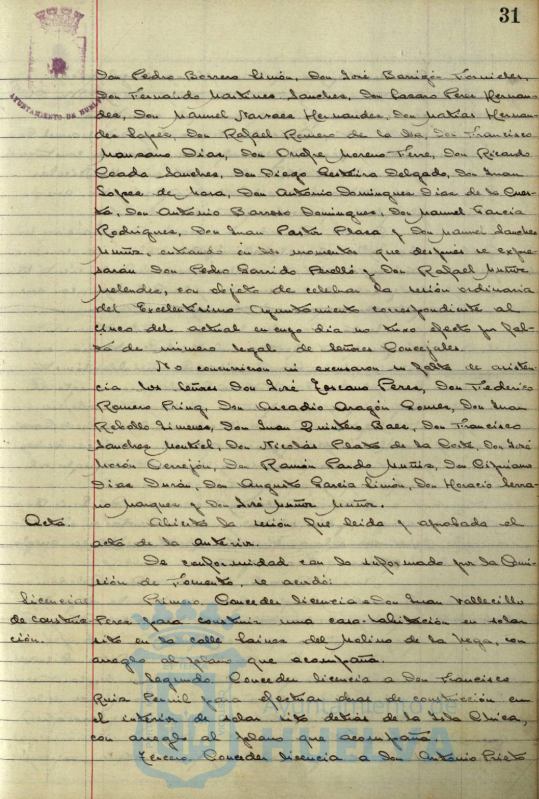 31
AYUNTAMIENTO DE HUELVA
Don Pedro Borrero Limón, Don José Barrigón Fornieles,
Don Fernando Martínez Sanchez, Don Lazaro Perez Hernan-
dez, Don Manuel Narvaez Hernandez, Don Matías Hernan-
dez Lopez, Don Rafael Romero de la Dia, Don Francisco
Manzano Dias, Don Onofre Moreno Ferre, Don Ricardo
Sanchez, Don Diego Delgado, Don Juan
Lopez de Mora, Don Antonio Dominguez Dias de la Cues-
ta, Don Antonio Barroso Dominguez, Don Manuel García
Rodriguez, Don Juan Plaza y Don Manuel Sanchez
Muñiz, entrando en los momentos que después se expre-
sarán Don Pedro Garrido Perelló y Don Rafael Muñiz
Melendez, con objeto de celebrar la sesión ordinaria
del Excelentísimo Ayuntamiento correspondiente al
cinco del actual en cuyo dia no tuvo efecto por fal-
ta de número legal de Señores Concejales.
No concurrieron ni excusaron su falta de asisten-
cia los Señores Don José Toscano Perez, Don Federico
Romero Don Arcadio Aragón Gomez, Don Juan
Rebollo Jimenez, Don Juan Quintero Baez, Don Francisco
Sanchez Montiel, Don Nicolás de la Don José
Morón Cerrejón, Don Ramón Pardo Muñiz, Don Cipriano
Dias Durán, Don Augusto García Limón, Don Horacio Serra-
no Marquez y Don José Muñiz Muñiz.
Acta. Abierta la sesión fue leida y aprobada el
acta de la anterior.
De conformidad con lo informado por la Comi-
sión de Fomento, se acordó:
Licencias Primero. Conceder licencia a Don Juan Vallecillo
de construc- Perez para construir una casa-habitación en solar
ción. sito en la calle del Molino de la Vega, con
arreglo al plano que acompaña.
Segundo. Conceder licencia a Don Francisco
Ruiz Pernil para efectuar obras de construcción en
el interior de solar sito detrás de la Isla Chica,
con arreglo al plano que acompaña.
Tercero. Conceder licencia a Don Antonio Prieto
Ayuntamiento de
HUELVA